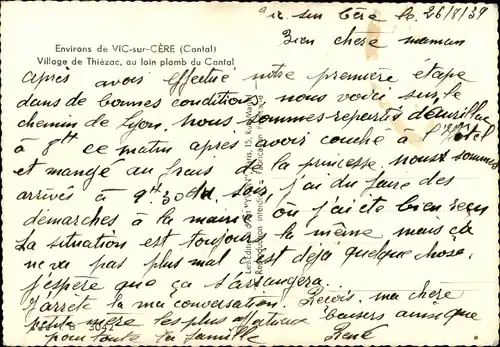 Vic sur Cère le 26/8/39
Environs de VIC-sur-CÈRE (Cantal)
Village de Thiézac, au loin plomb du Cantal
Bien chère maman
après avoir effectué notre première étape
dans de bonnes conditions, nous voici sur le
chemin de Lyon, nous sommes repartis d'Aurillac
à 8h ce matin après avoir couché à l'Hôtel
et mangé au frais de la princesse, nous sommes
arrivés à 9h 30 du soir, j'ai du faire des
démarches à la mairie où j'ai été bien reçu
La situation est toujours la même mais ça
ne va pas plus mal c'est déjà quelque chose.
j'espère que ça s'arrangera.
J'arrête la ma conversation. Reçois, ma chère
petite mère les plus affectueux baisers ainsi que
pour toute la famille René